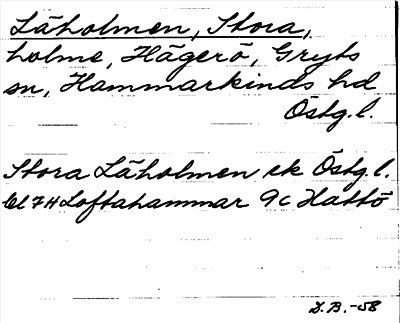 Läholmen, Stora,
holme, Hägerö, Gryts
sn, Hammarkinds hd
Östg.l.
Stora Läholmen ek Östg.l.
bl 74 Loftahammar 9c Hattö
D.B.-58